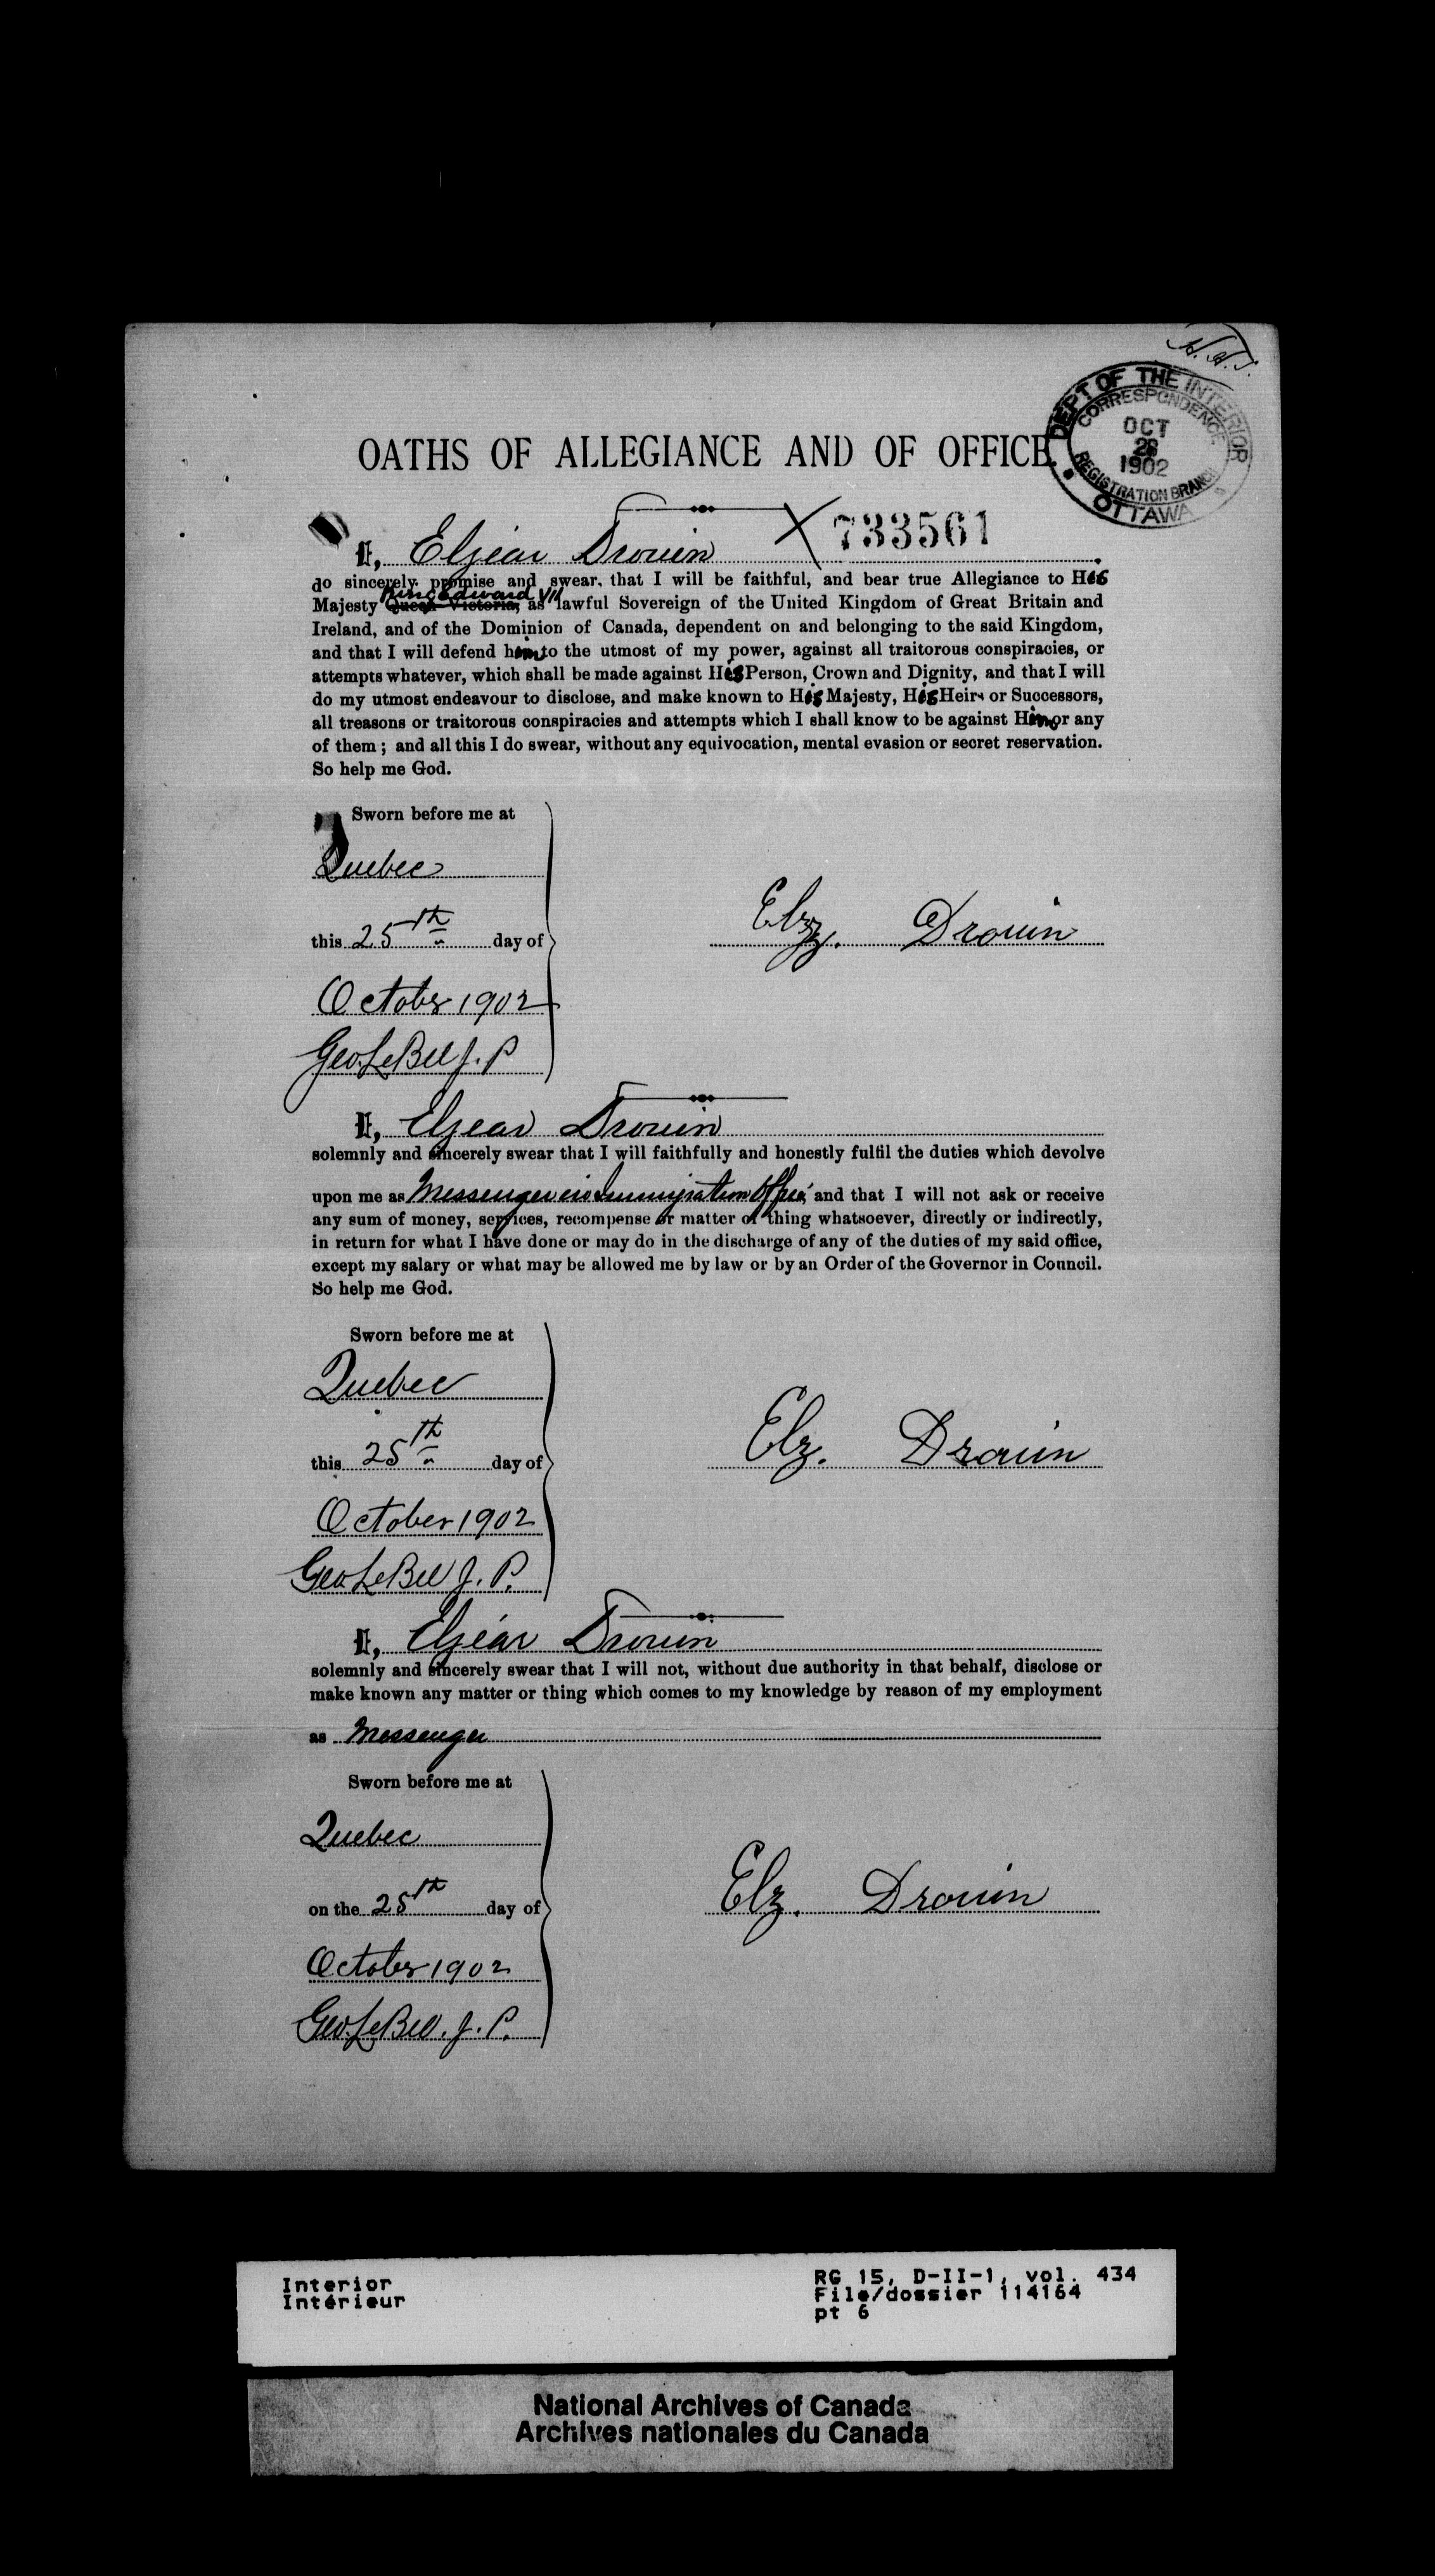 H.H.S.
DEPT OF THE INTERIOR
CORRESPONDENCE
OCT
28
1902
REGISTRATION BRANCH
OTTAWA
OATHS OF ALLEGIANCE AND OF OFFICE.
733561
I, Elzéar Drouin
do sincerely promise and swear, that I will be faithful, and bear true Allegiance to His
King Edward VII
Majesty Queen Victoria, as lawful Sovereign of the United Kingdom of Great Britain and
Ireland, and of the Dominion of Canada, dependent on and belonging to the said Kingdom,
and that I will defend him to the utmost of my power, against all traitorous conspiracies, or
attempts whatever, which shall be made against His Person, Crown and Dignity, and that I will
do my utmost endeavour to disclose, and make known to His Majesty, His Heirs or Successors,
all treasons or traitorous conspiracies and attempts which I shall know to be against Him or any
of them ; and all this I do swear, without any equivocation, mental evasion or secret reservation.
So help me God.
Sworn before me at
Quebec
this 25th day of
Elz. Drouin
October 1902
Geo LeBel J. P
I, Elzear Drouin
solemnly and sincerely swear that I will faithfully and honestly fulfil the duties which devolve
upon me as Messenger in Immigration Office, and that I will not ask or receive
any sum of money, services, recompense or matter or thing whatsoever, directly or indirectly,
in return for what I have done or may do in the discharge of any of the duties of my said office,
except my salary or what may be allowed me by law or by an Order of the Governor in Council.
So help me God.
Sworn before me at
Quebec
this 25th day of
Elz. Drouin
October 1902
Geo LeBel J. P.
I, Elzéar Drouin
solemnly and sincerely swear that I will not, without due authority in that behalf, disclose or
make known any matter or thing which comes to my knowledge by reason of my employment
as Messenger
Sworn before me at
Quebec
on the 25th day of
Elz. Drouin
October 1902
Geo LeBel. J. P.
Interior
Intérieur
RG 15, D-II-1, vol. 434
File/dossier 114164
pt 6
National Archives of Canada
Archives nationales du Canada